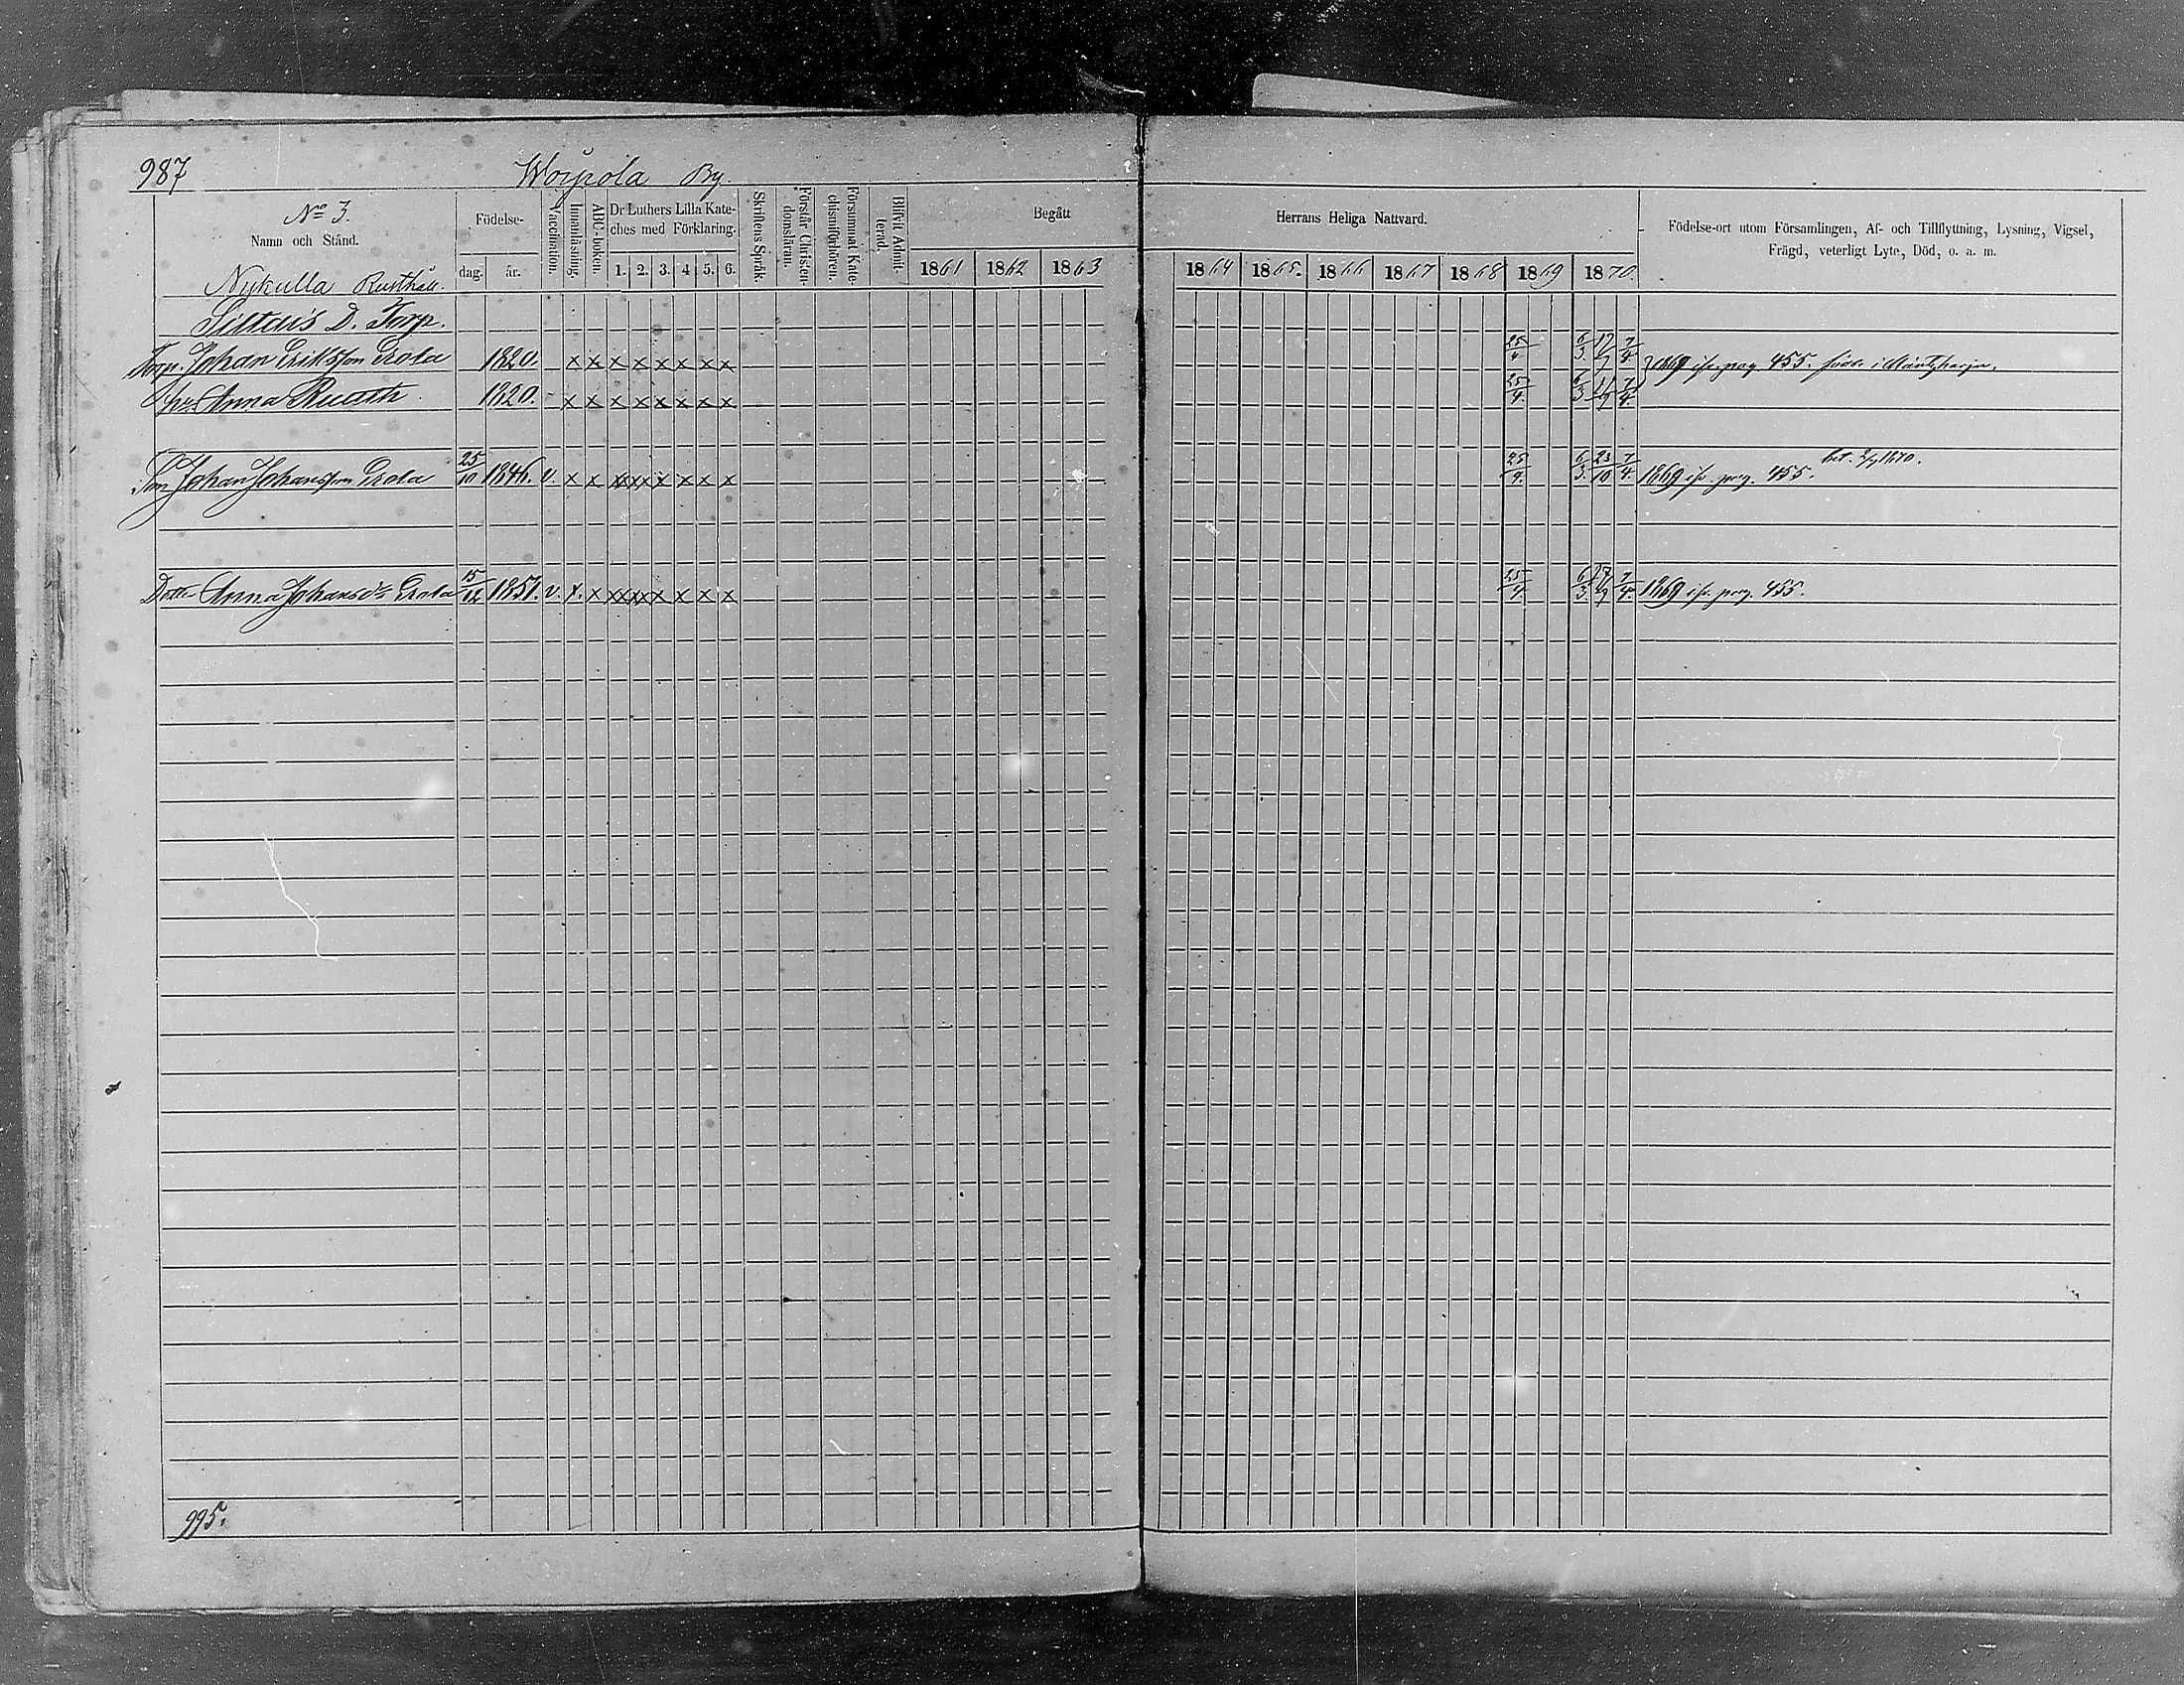 987 By.
No 3.
Namn och Stånd.
Födelse-
dag. år.
Vaccination.
Innanläsning.
ABC-boken.
Dr Luthers Lilla Kate-
ches med Förklaring.
1. 2. 3. 4 5. 6.
Skriftens Språk.
Förstår Christen-
domsläran.
Försummat Kate-
chismiförhören.
Blifvit Admit-
terad.
Begått
1861 1862 1863
Herrans Heliga Nattvard.
1864 1865. 1866 1867 1868 1869 1870.
Födelse-ort utom Församlingen, Af- och Tillflyttning, Lysning, Vigsel,
Frägd, veterligt Lyte, Död, o. a. m.
Nykulla Rusthåll.
D. Torp.
Torp. Johan Eriksson Erola 1820. x x x x x x x x 25/4 6/3. 7/4. 1869 ifr. pag. 455. född i Mäntyharju.
hu. Anna 1820. x x x x x x x x 25/4. 6/3 7/4.
Son Johan Johansson Erola 25/10 1846. v. x x xx xx x x x x 25/4. 6/3. 23/10 7/4. 1869 ifr. pag. 455.
Dotter Anna Johansd:r Erola 15/12 1851. v. x. x xx xx x x x x 25/4. 6/3. 7/4. 1869 ifr. pag. 455.
995.